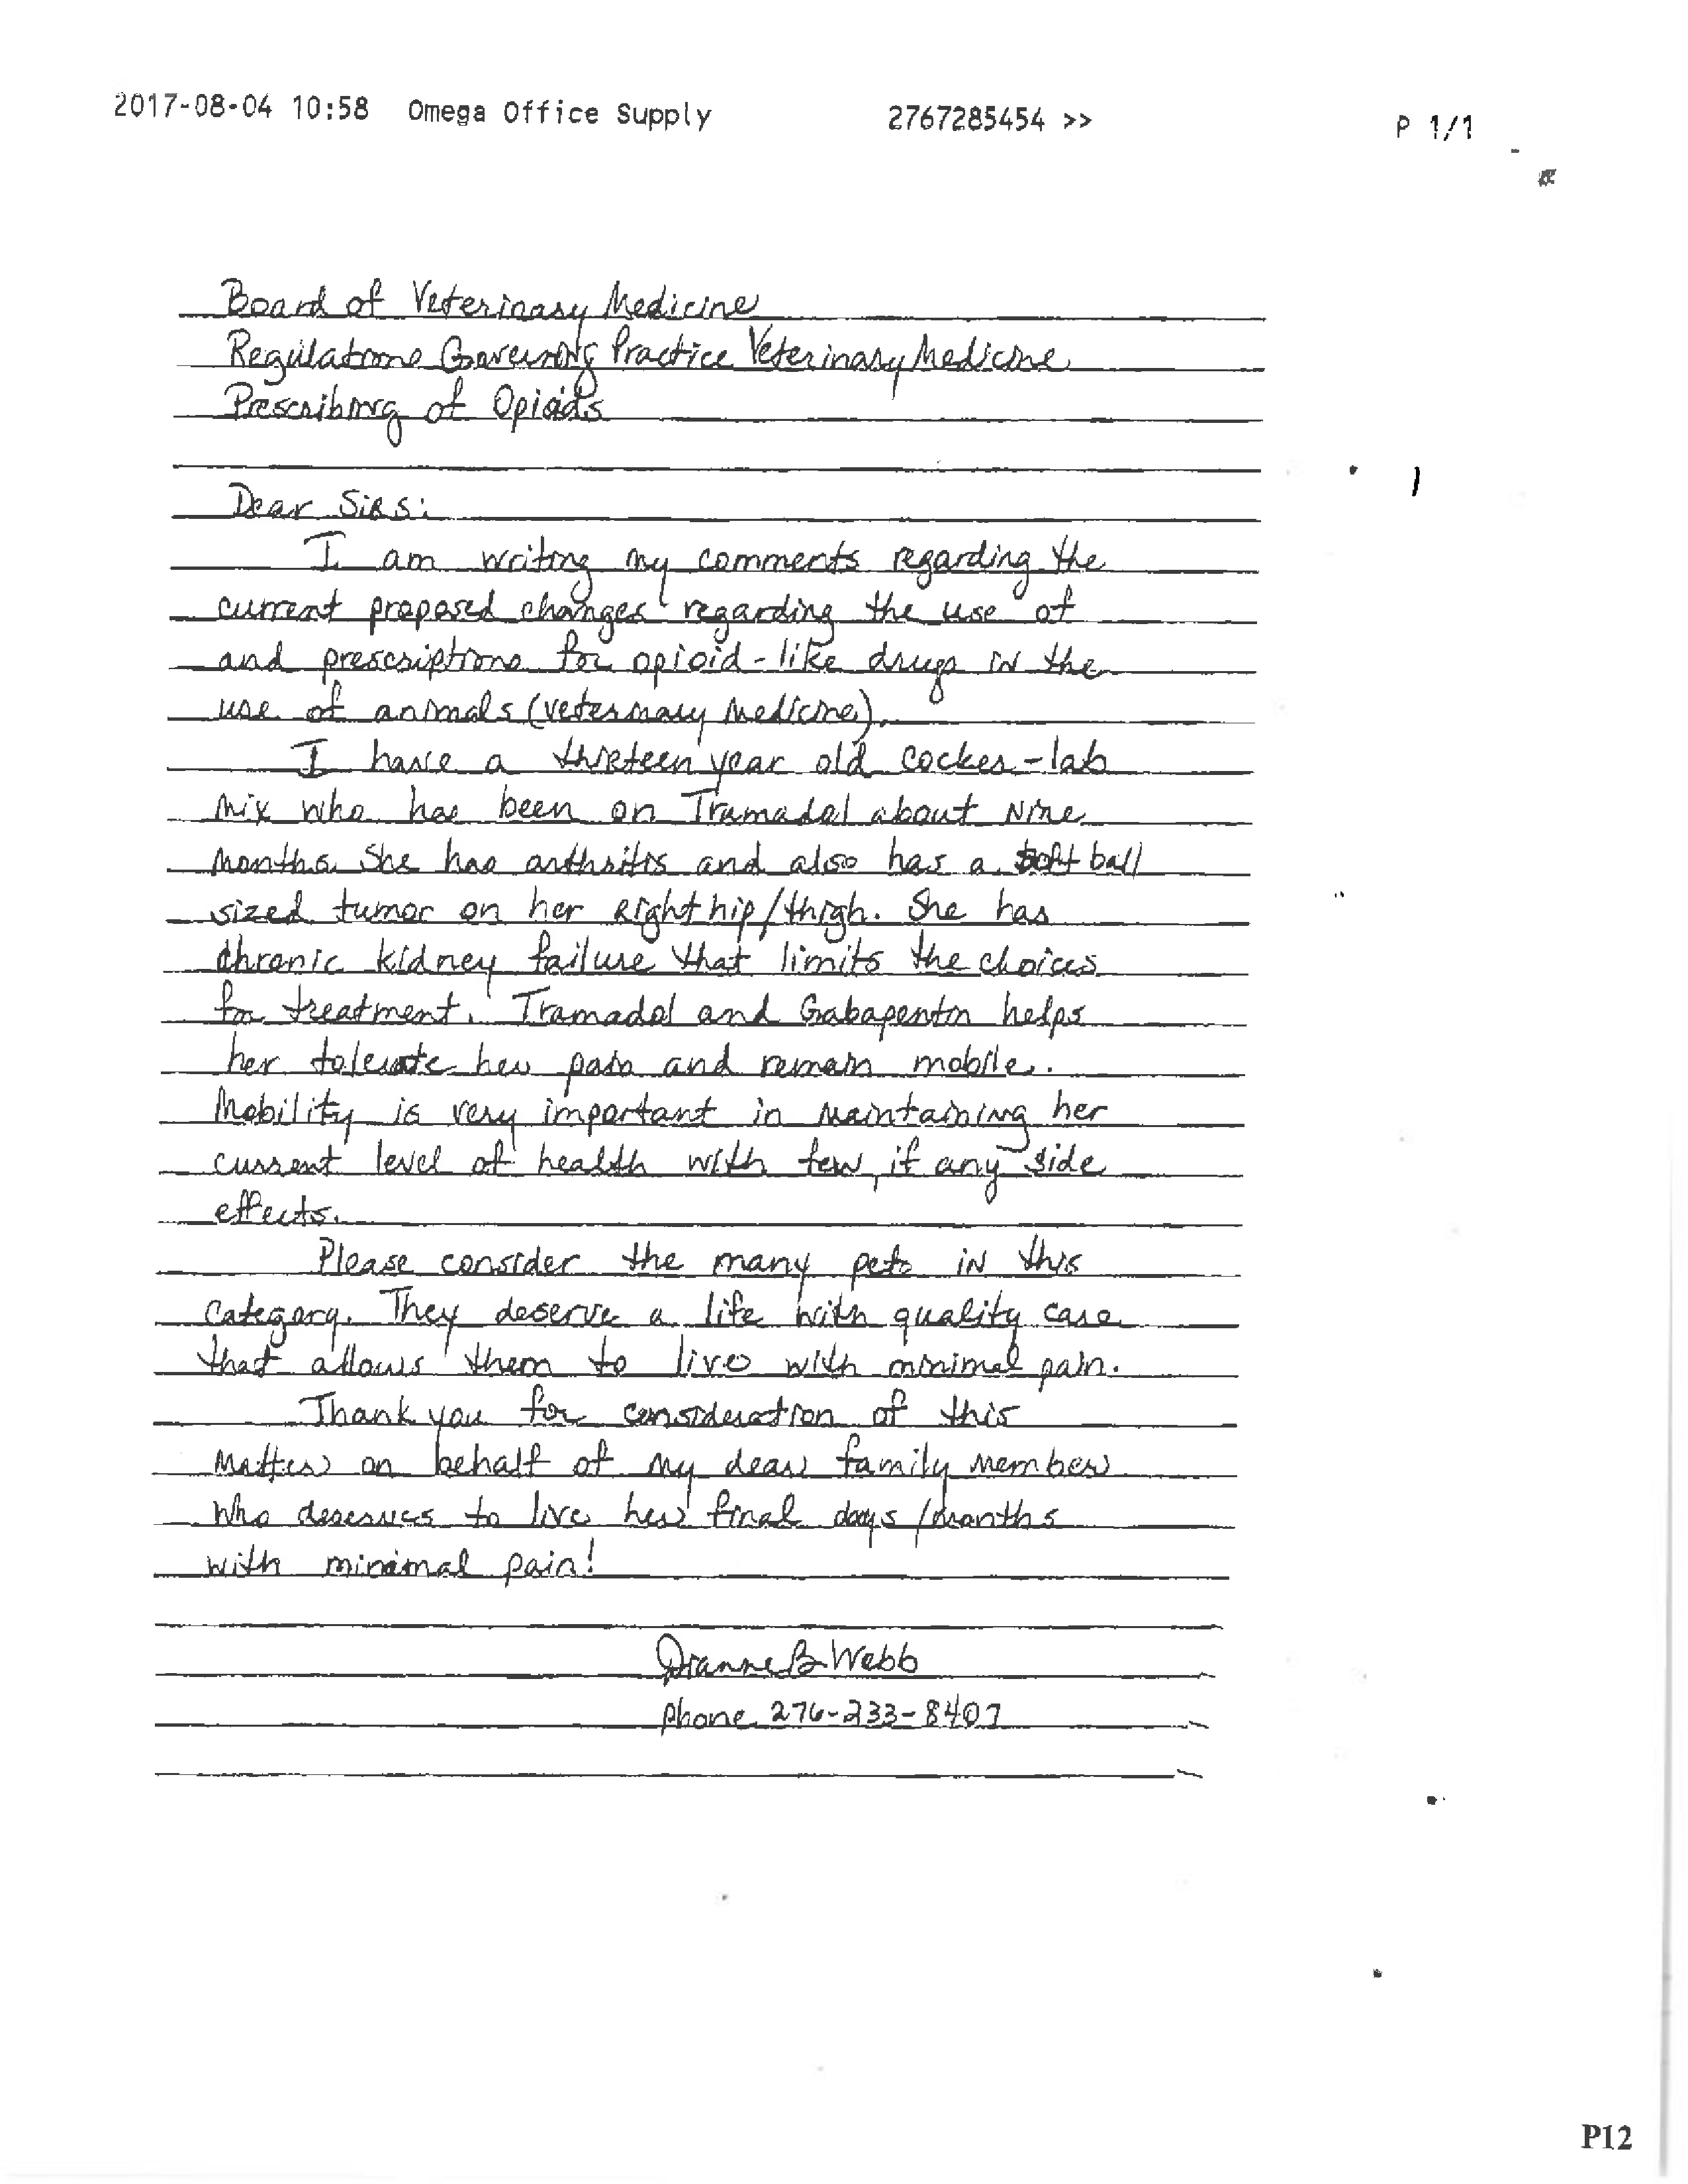 2017-08-04 10:58 Omega Office Supply 2767285454 >> P 1/1
Board of Veterinary Medicine
Regulations Governing Practice Veterinary Medicine
Prescribing of Opioids
Dear Sirs:
I am writing my comments regarding the
current proposed changes regarding the use of
and prescriptions for opioid-like drugs in the
use of animals (veterinary medicine).
I have a thirteen year old cocker-lab
mix who has been on Tramadol about nine
months. She has arthritis and also has a softball
sized tumor on her right hip/thigh. She has
chronic kidney failure that limits the choices
for treatment. Tramadol and Gabapentin helps
her tolerate her pain and remain mobile.
Mobility is very important in maintaining her
current level of health with few, if any side
effects.
Please consider the many pets in this
category. They deserve a life with quality care
that allows them to live with minimal pain.
Thank you for consideration of this
matter on behalf of my dear family member
who deserves to live her final days/months
with minimal pain!
Dianne B Webb
phone 276-233-8407
P12